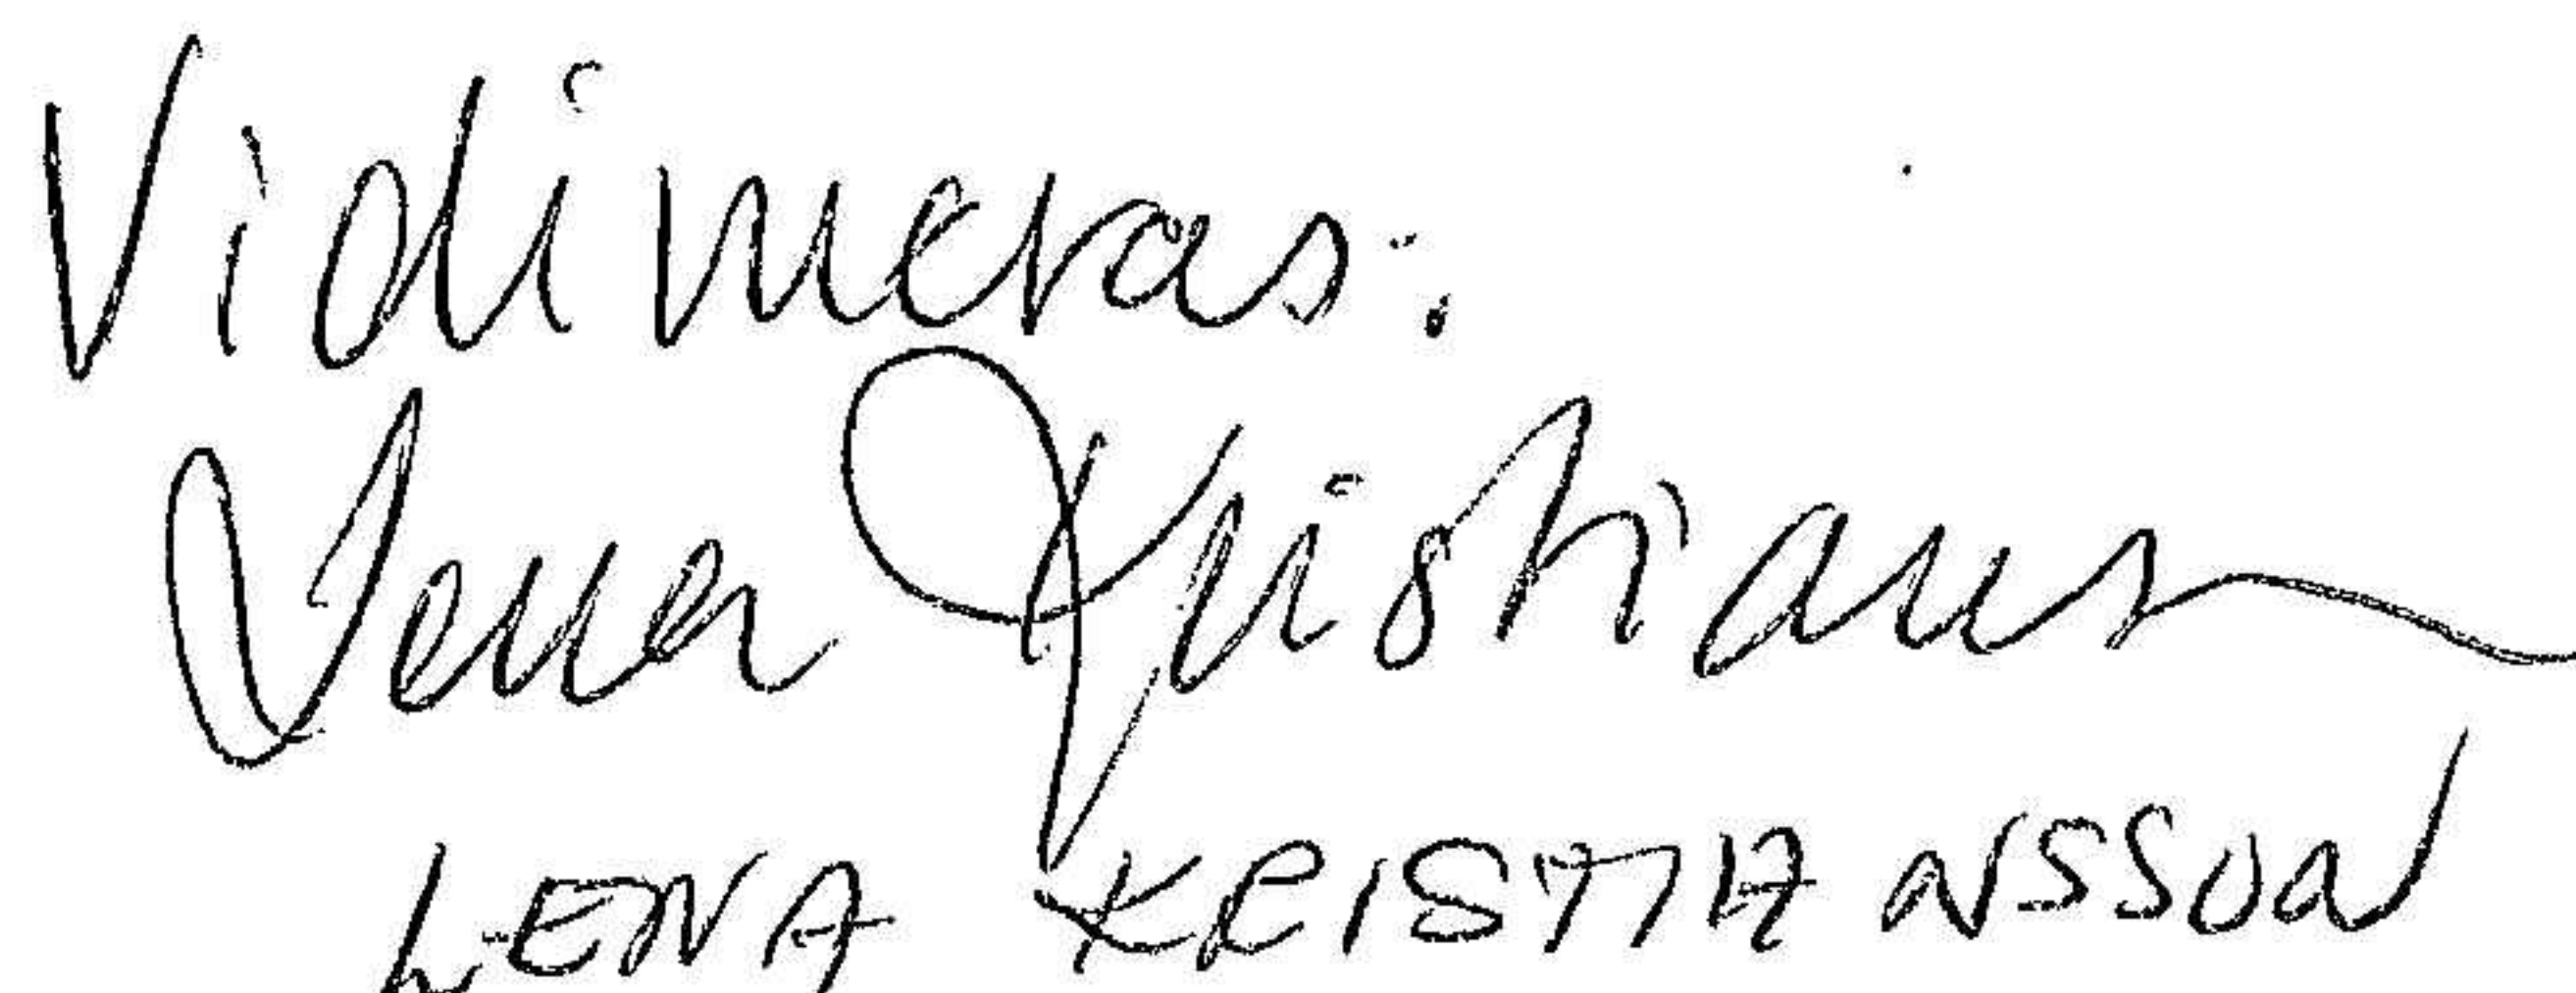 Vidimeras:
Lena Kristianss
LENA KRISTIANSSON